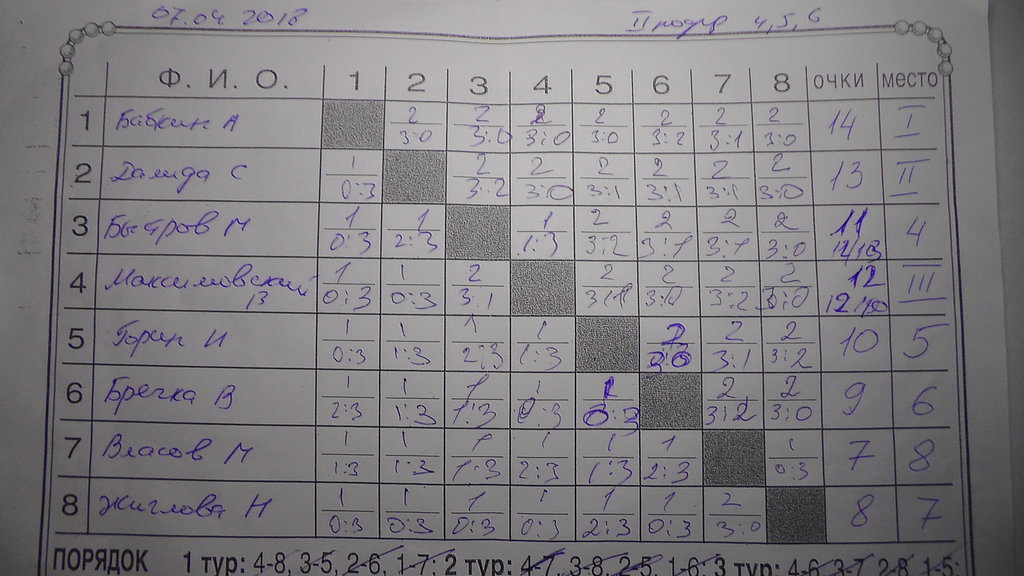 07.04 2018 II подгр 4,5,6
Ф. И. О. 1 2 3 4 5 6 7 8 очки место
1 Бабкин А 2 2 2 2 2 2 2 14 I
3:0 3:0 3:0 3:0 3:2 3:1 3:0
2 Далида С 1 2 2 2 2 2 2 13 II
0:3 3:2 3:0 3:1 3:1 3:1 3:0
3 Быстров М 1 1 1 2 2 2 2 11 4
0:3 2:3 1:3 3:2 3:1 3:1 3:0
4 Максимовский В 1 1 2 2 2 2 2 12 III
0:3 0:3 3:1 3:1 3:0 3:2 3:0
5 Горин И 1 1 1 1 2 2 2 10 5
0:3 1:3 2:3 1:3 3:0 3:1 3:2
6 Брегка В 1 1 1 1 1 2 2 9 6
2:3 1:3 1:3 0:3 0:3 3:2 3:0
7 Власов М 1 1 1 1 1 1 1 7 8
1:3 1:3 1:3 2:3 1:3 2:3 0:3
8 Жиглова Н 1 1 1 1 1 1 2 8 7
0:3 0:3 0:3 0:3 2:3 0:3 3:0
ПОРЯДОК 1 тур: 4-8, 3-5, 2-6, 1-7; 2 тур: 4-7, 3-8, 2-5, 1-6; 3 тур: 4-6, 3-7, 2-8, 1-5;